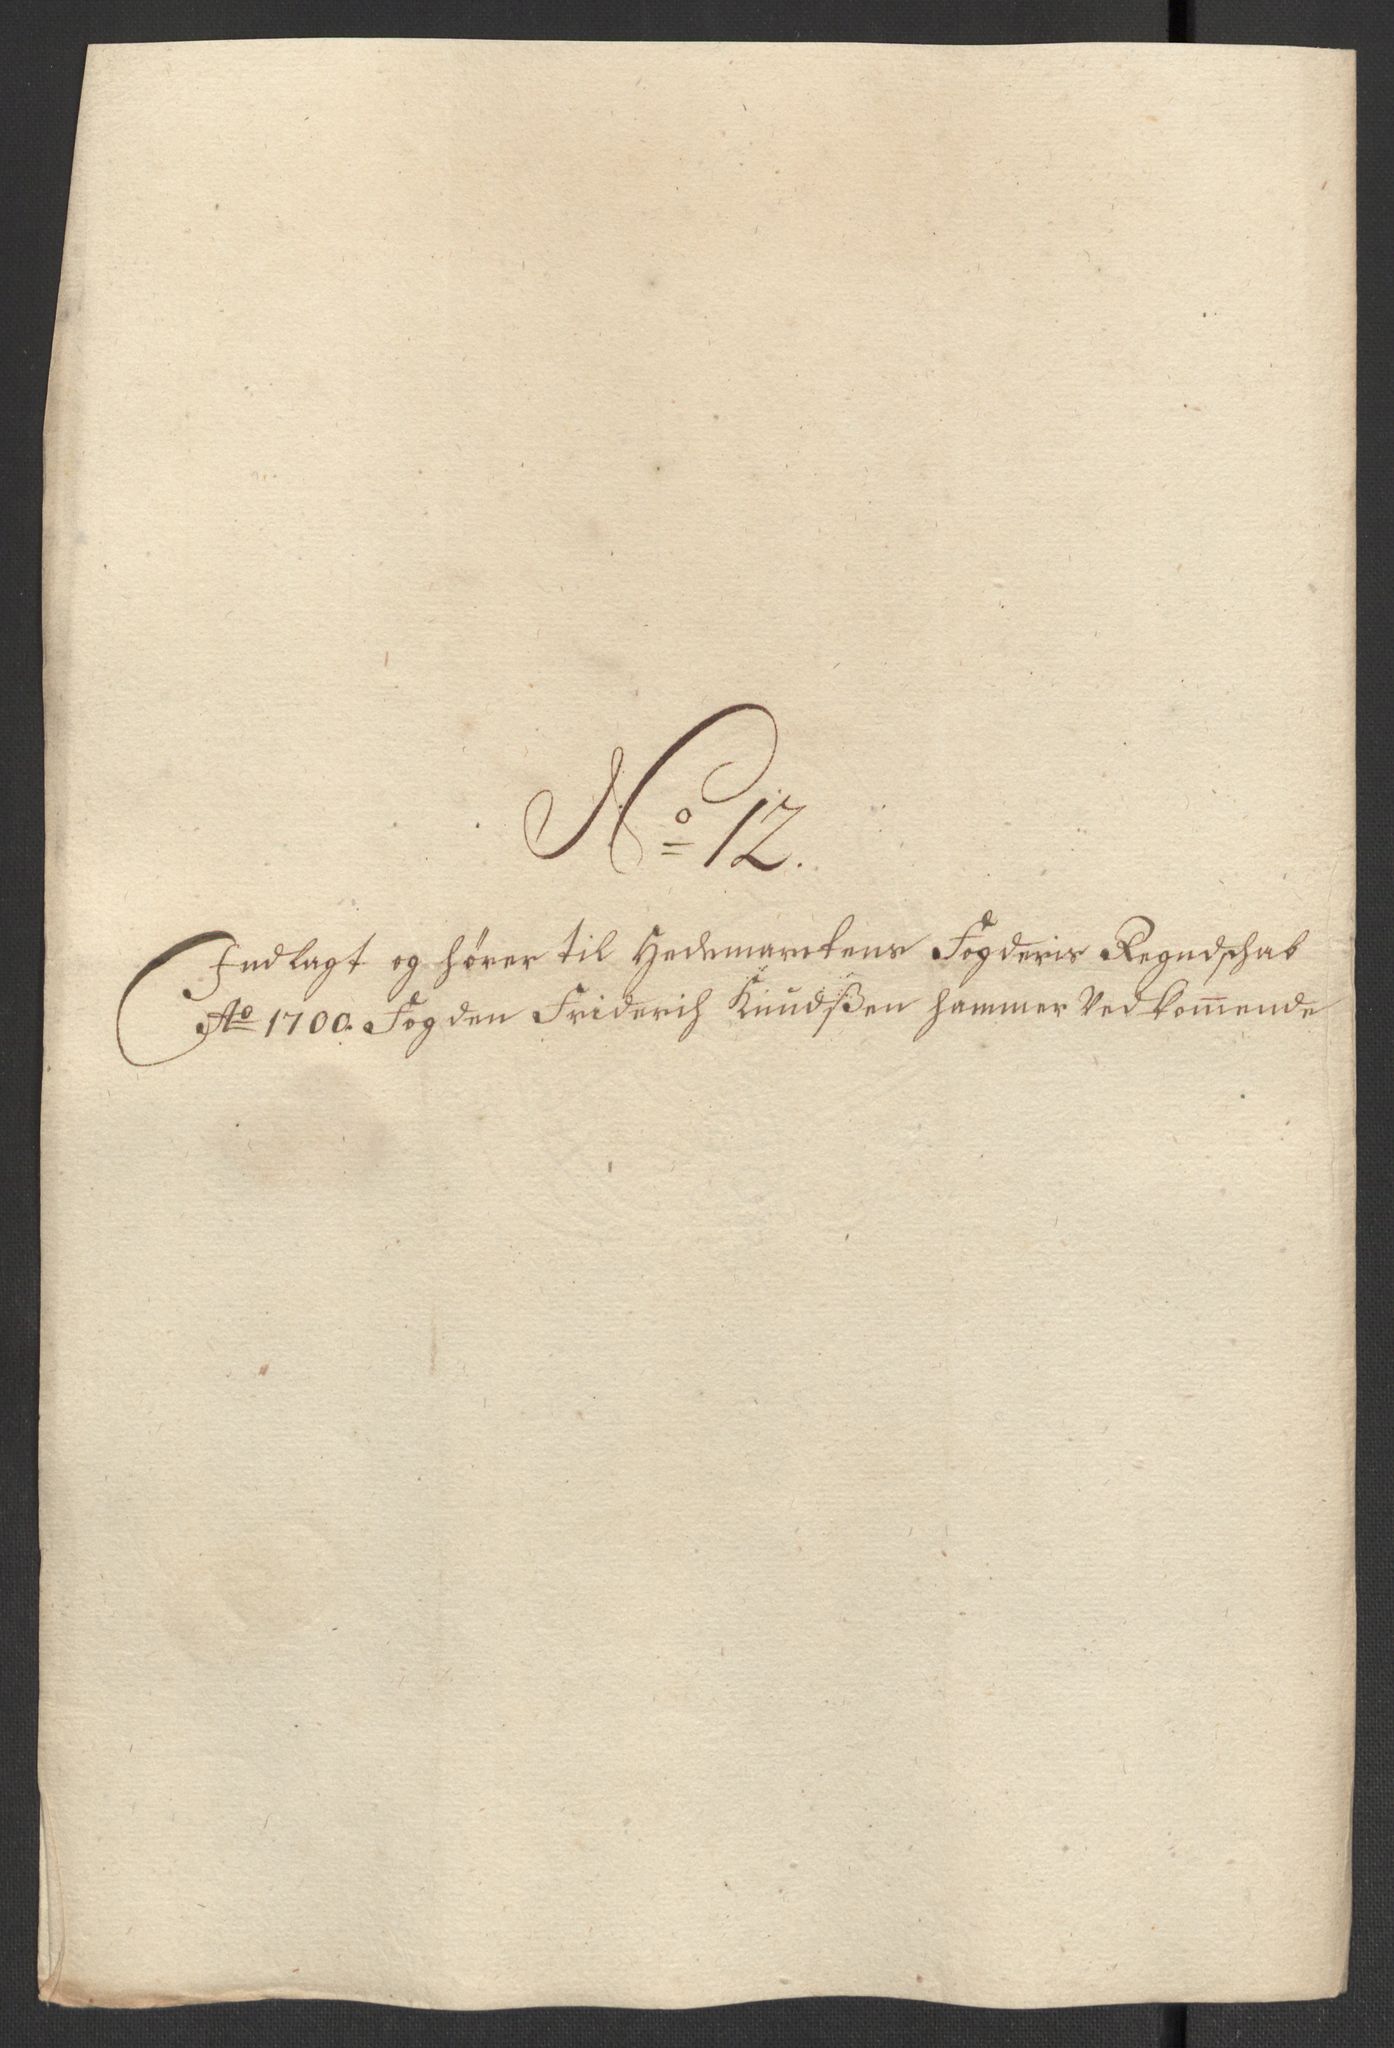 No 12.
Indlagt og hører til Hedemarckens Fogderis Regndschab
Ao 1700. Fogden Friderich Knudsßen Hammer Vedkom̄ende